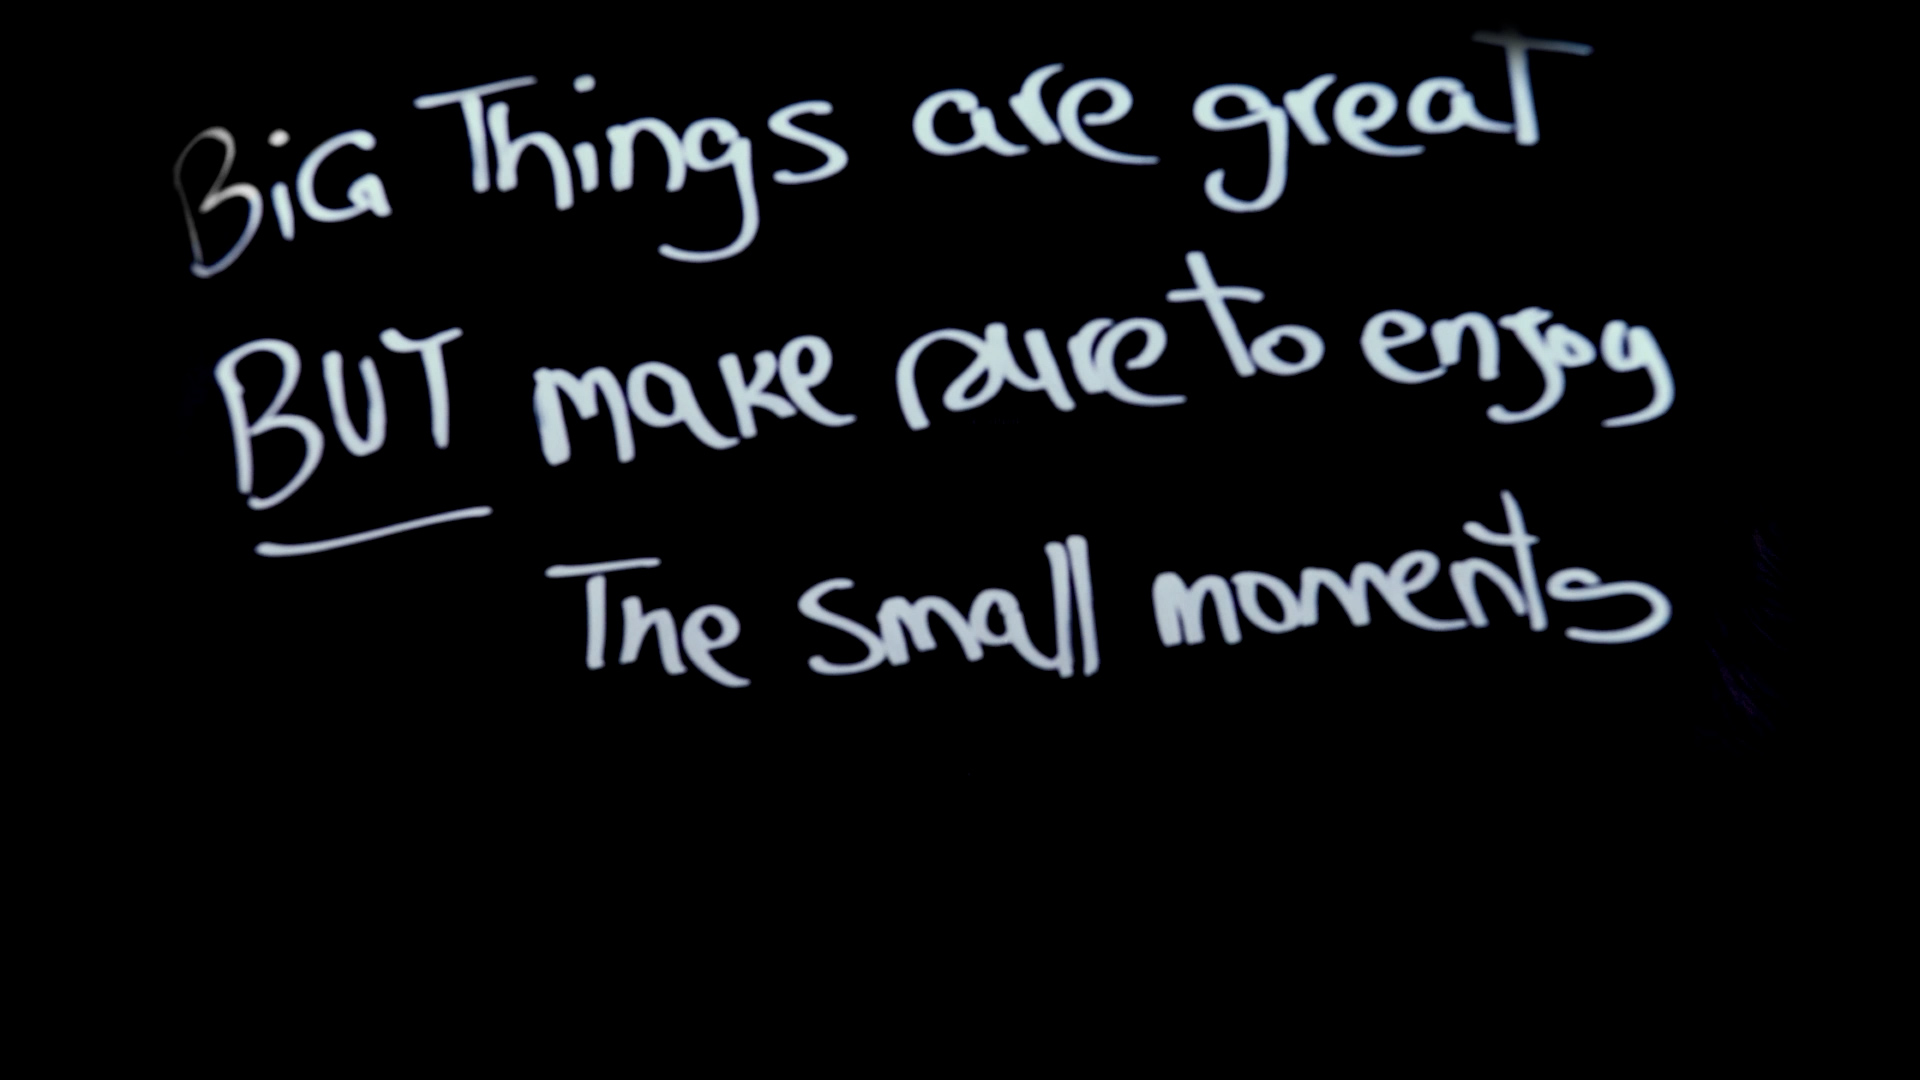 BiG Things are greaT
BUT make sure to enjoy
The small moments